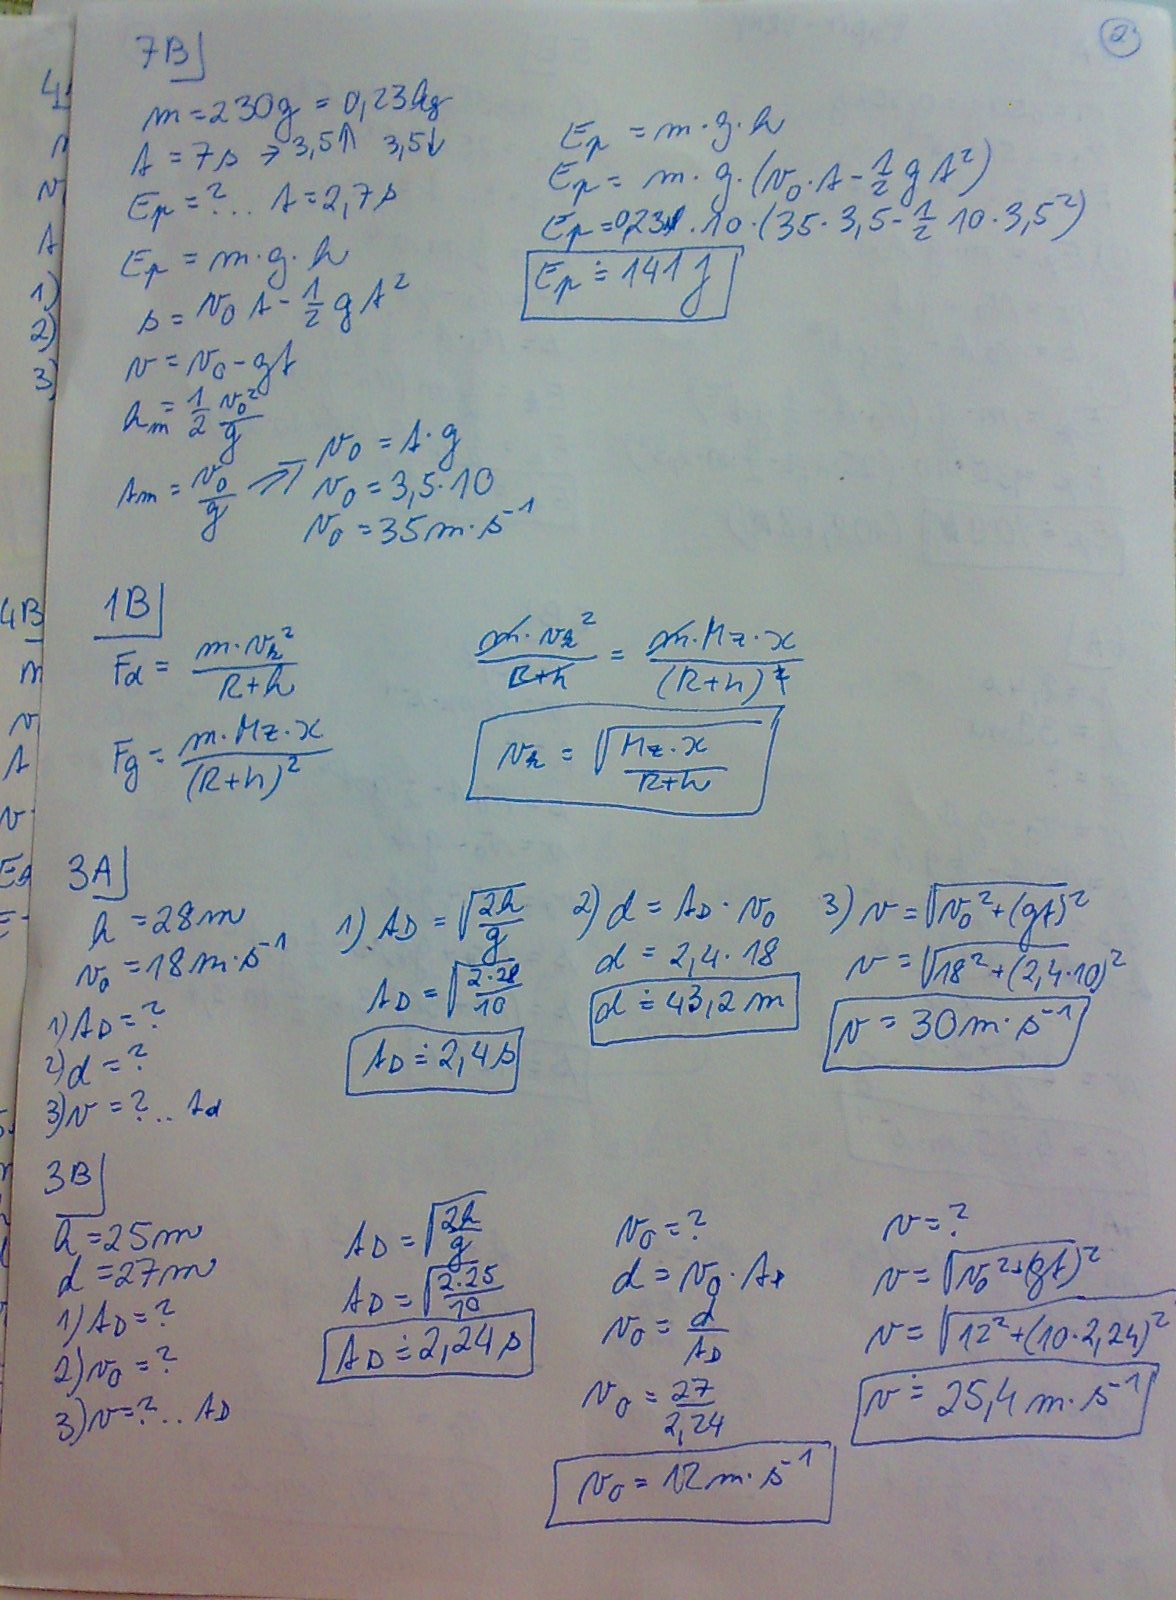 2
7B
m = 230g = 0,23kg
t = 7s → 3,5↑ 3,5↓
Ep = ?... t = 2,7s
Ep = m·g·h
s = v₀ t - 1/2 g t²
v = v₀ - gt
hm = 1/2 v₀²/g
tm = v₀/g ⇒ v₀ = t·g
v₀ = 3,5·10
v₀ = 35 m·s⁻¹
Ep = m·g·h
Ep = m·g·(v₀·t - 1/2 g t²)
Ep = 0,23·10·(35·3,5 - 1/2 10·3,5²)
Ep ≐ 141 J
1B
Fd = m·vk²/R+h
Fg = m·Mz·ϰ/(R+h)²
m·vk²/R+h = m·Mz·ϰ/(R+h)²
vk = √Mz·ϰ/R+h
3A
h = 28m
v₀ = 18 m·s⁻¹
1) tD = ?
2) d = ?
3) v = ?... td
1) tD = √2h/g
tD = √2·28/10
tD ≐ 2,4s
2) d = tD · v₀
d = 2,4·18
d ≐ 43,2 m
3) v = √v₀² + (gt)²
v = √18² + (2,4·10)²
v = 30 m·s⁻¹
3B
h = 25m
d = 27m
1) tD = ?
2) v₀ = ?
3) v = ?... tD
tD = √2h/g
tD = √2·25/10
tD ≐ 2,24s
v₀ = ?
d = v₀·tD
v₀ = d/tD
v₀ = 27/2,24
v₀ = 12 m·s⁻¹
v = ?
v = √v₀² + (gt)²
v = √12² + (10·2,24)²
v ≐ 25,4 m·s⁻¹
1)
2)
3)
4B